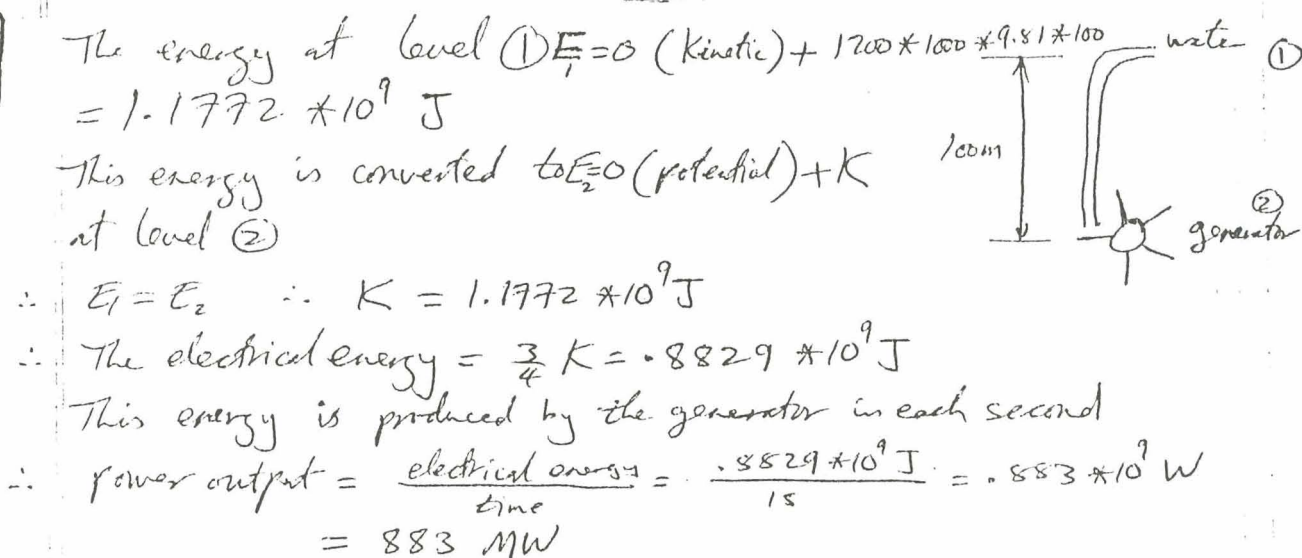 The energy at level ① E₁=0 (Kinetic) + 1200*1000*9.81*100
= 1.1772 *10⁹ J
This energy is converted to E₂=0 (potential)+K
at level ②
∴ E₁ = E₂ ∴ K = 1.1772 *10⁹J
∴ The electrical energy = 3/4 K = .8829 *10⁹J
This energy is produced by the generator in each second
∴ Power output = electrical energy / time = .8829*10⁹ J / 1s = .883*10⁹ W
= 883 MW
water ①
100m
②
generator